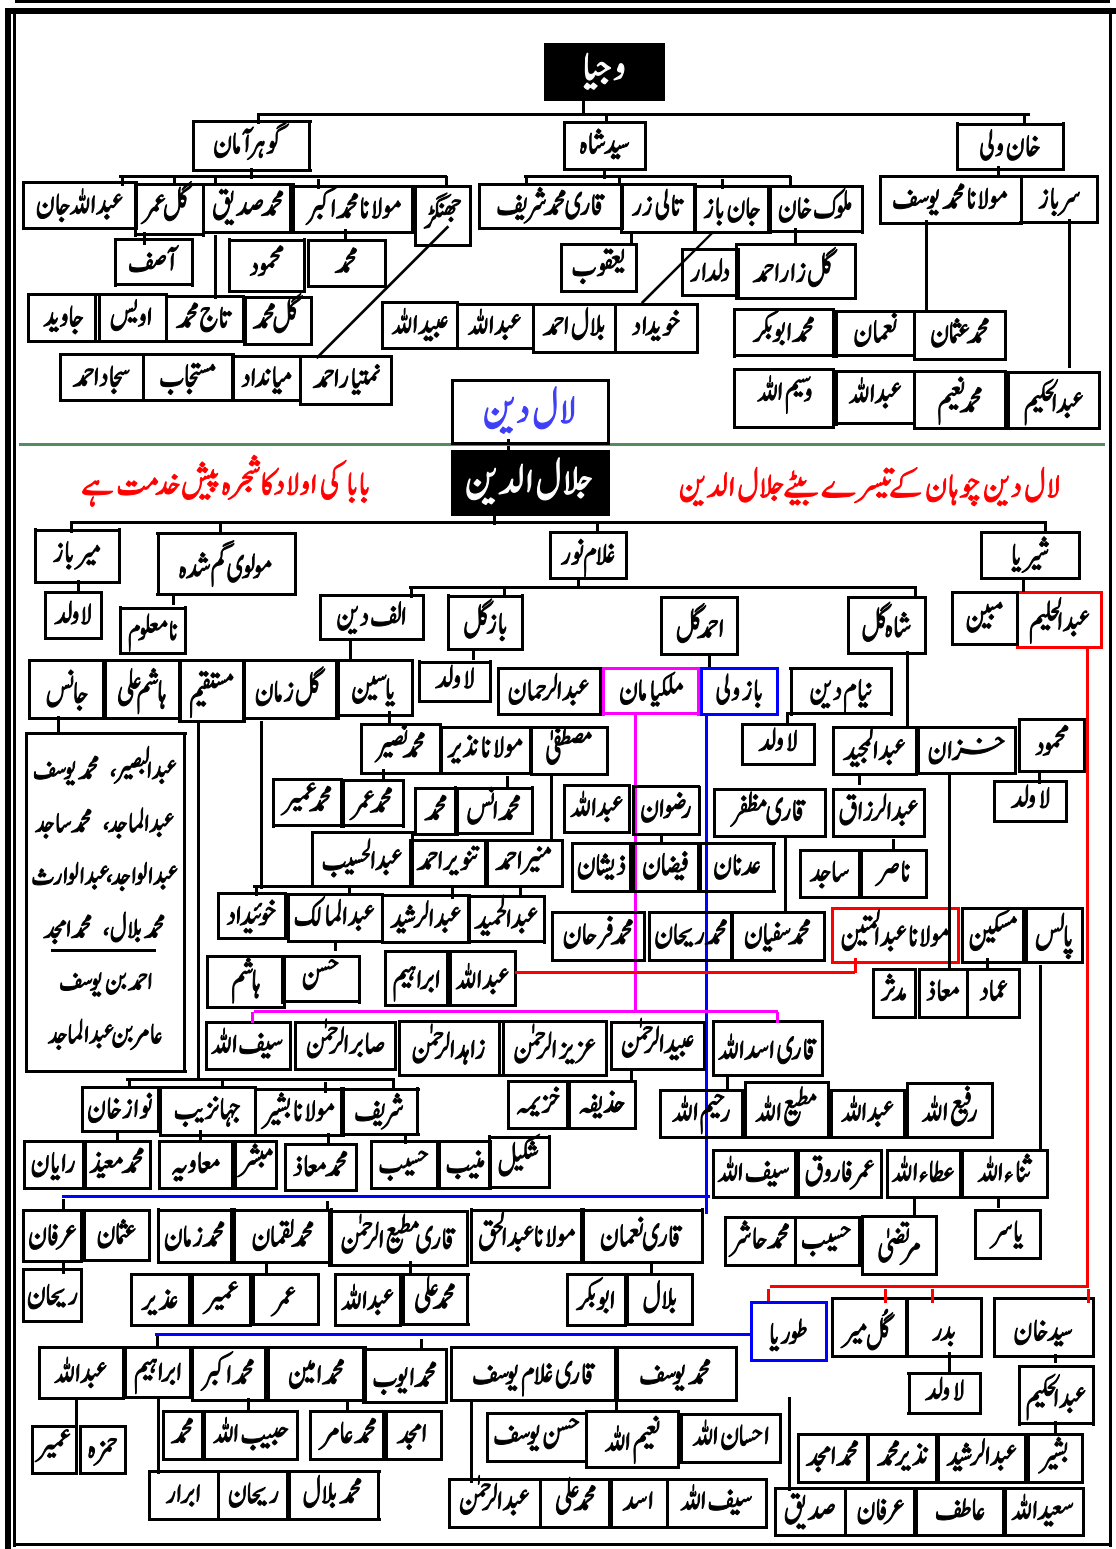 وجیا
خان ولی سید شاہ گوہر آمان
سرباز مولانا محمد یوسف ملوک خان جان باز تالی زر قاری محمد شریف جھنگڑ مولانا محمد اکبر محمد صدیق گل عمر عبداللہ جان
گل زار احمد دلدار یعقوب محمد محمود آصف
محمد عثمان نعمان محمد ابوبکر خویداد بلال احمد عبداللہ عبیداللہ گل محمد تاج محمد اویس جاوید
عبدالحکیم محمد نعیم عبداللہ وسیم اللہ نمتیار احمد میانداد مستجاب سجاد احمد
لال دین
لال دین چوہان کے تیسرے بیٹے جلال الدین جلال الدین بابا کی اولاد کا شجرہ پیش خدمت ہے
شیریا غلام نور مولوی گم شدہ میر باز
عبدالحلیم مبین شاہ گل احمد گل باز گل الف دین نامعلوم لاولد
نیام دین باز ولی ملکیا مان عبدالرحمان لاولد یاسین گل زمان مستقیم ہاشم علی جانس
محمود خزان عبدالمجید لاولد مصطفیٰ مولانا نذیر محمد نصیر
عبدالبصیر، محمد یوسف
لاولد عبدالرزاق قاری مظفر رضوان عبداللہ محمد انس محمد محمد عمر محمد عمیر
عبدالماجد، محمد ساجد
ناصر ساجد عدنان فیضان ذیشان منیر احمد تنویر احمد عبدالحسیب
عبدالواجد، عبدالوارث
پالس مسکین مولانا عبدالمتین محمد سفیان محمد ریحان محمد فرحان عبدالحمید عبدالرشید عبدالمالک خوئیداد
محمد بلال، محمد امجد
عماد معاذ مدثر عبداللہ ابراہیم حسن ہاشم
احمد بن یوسف
عامر بن عبدالماجد
قاری اسد اللہ عبیدالرحمٰن عزیز الرحمٰن زاہد الرحمٰن صابر الرحمٰن سیف اللہ
رفیع اللہ عبداللہ مطیع اللہ رحیم اللہ حذیفہ خزیمہ شریف مولانا بشیر جہانزیب نواز خان
ثناء اللہ عطاء اللہ عمر فاروق سیف اللہ شکیل منیب حسیب محمد معاذ مبشر معاویہ محمد معیذ رایان
یاسر مرتضیٰ حسیب محمد حاشر قاری نعمان مولانا عبدالحق قاری مطیع الرحمٰن محمد لقمان محمد زمان عثمان عرفان
بلال ابوبکر محمد علی عبداللہ عمر عمیر عذیر ریحان
سید خان بدر گل میر طوریا
عبدالحکیم لاولد محمد یوسف قاری غلام یوسف محمد ایوب محمد امین محمد اکبر ابراہیم عبداللہ
بشیر عبدالرشید نذیر محمد محمد امجد احسان اللہ نعیم اللہ حسن یوسف امجد محمد عامر حبیب اللہ محمد حمزہ عمیر
سعید اللہ عاطف عرفان صدیق سیف اللہ اسد محمد علی عبدالرحمٰن محمد بلال ریحان ابرار